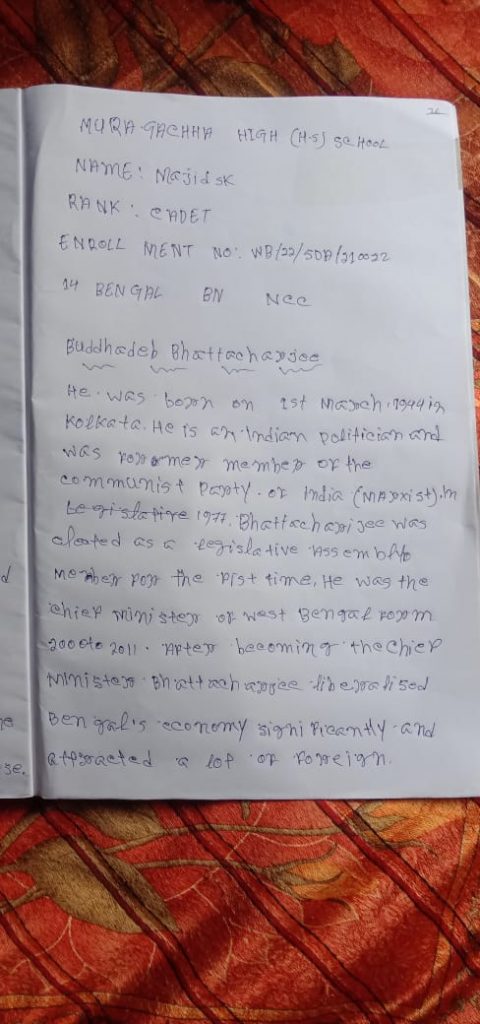 MURAGACHHA HIGH (H.S) SCHOOL
NAME: Majid SK
RANK: CADET
ENROLL MENT NO: WB/22/SDA/210022
14 BENGAL BN NCC
Buddhadeb Bhattacharjee
He was born on 1st March 1944 in
Kolkata. He is an Indian politician and
was former member of the
communist Party of India (Marxist). In
Legislative 1977, Bhattacharjee was
elected as a legislative Assembly
Member for the first time. He was the
chief Minister of West Bengal from
2000 to 2011. After becoming the chief
Minister Bhattacharjee liberalised
Bengal's economy significantly and
attracted a lot of foreign.
d
se.